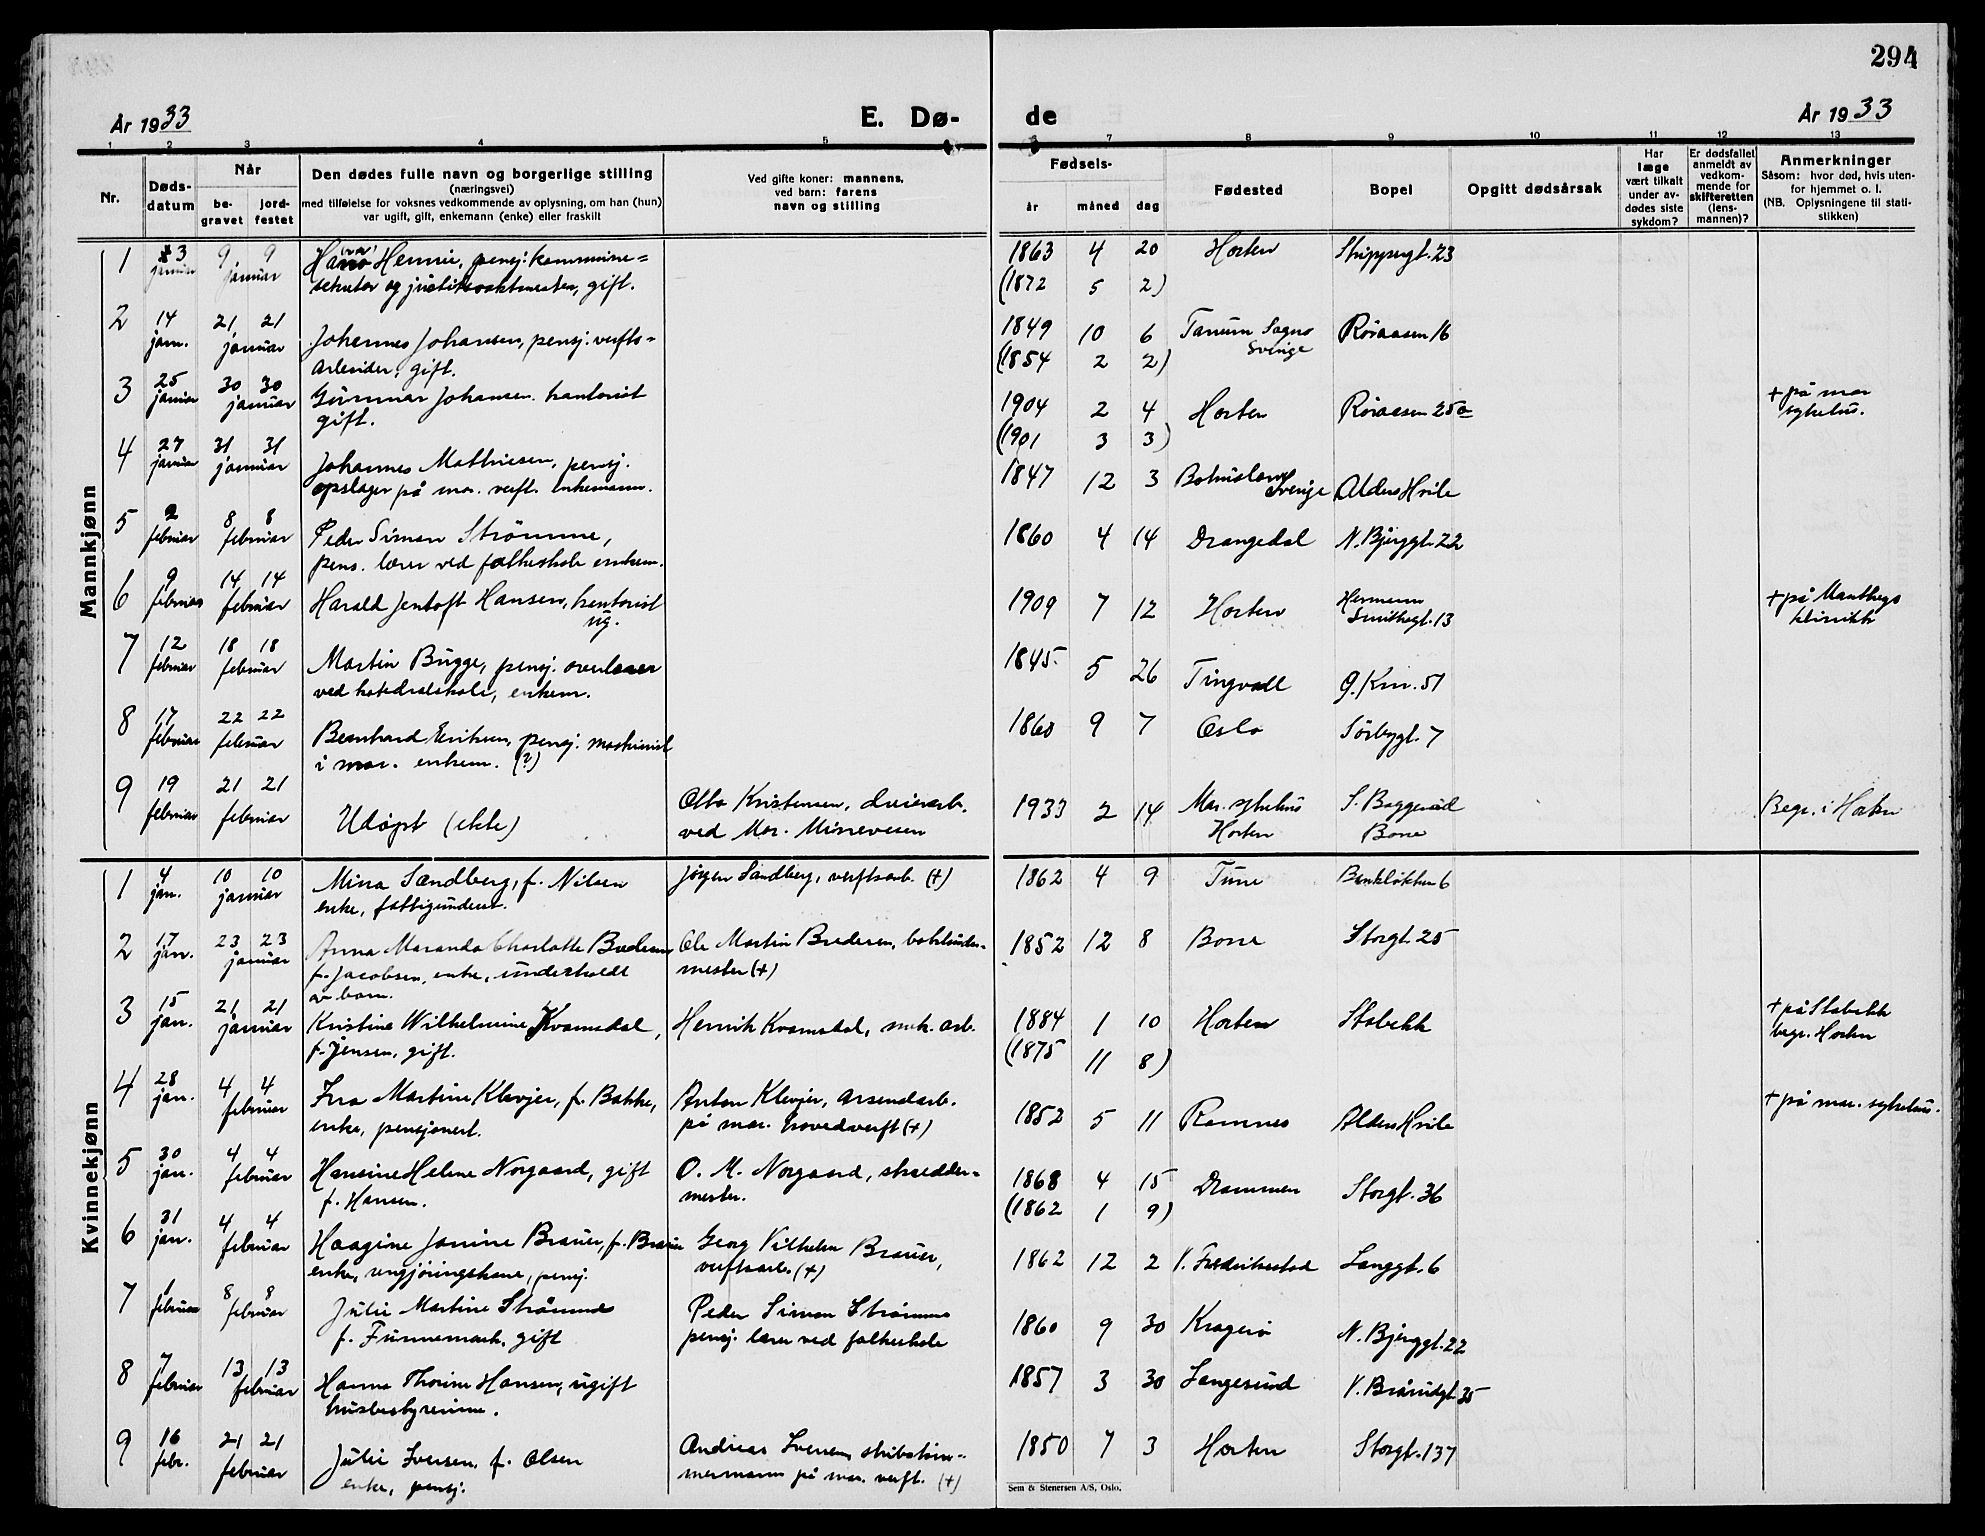 294
År 1933
E. Dø-
de
År 1933
1 2 3 4 5 6 7 8 9 10 11 12 13
Nr.
Døds-
datum
Når
be-
gravet
jord-
festet
Den dødes fulle navn og borgerlige stilling
(næringsvei)
med tilføielse for voksnes vedkommende av oplysning, om han (hun)
var ugift, gift, enkemann (enke) eller fraskilt
Ved gifte koner: mannens,
ved barn: farens
navn og stilling
Fødsels-
år måned dag
Fødested
Bopel
Opgitt dødsårsak
Har
læge
vært tilkalt
under av-
dødes siste
sykdom?
Er dødsfallet
anmeldt av
vedkom-
mende for
skifteretten
(lens-
mannen)?
Anmerkninger
Såsom: hvor død, hvis uten-
for hjemmet o. l.
(NB. Oplysningene til stati-
stikken)
Mannkjønn
1 3 9 9 Hennie, pensj. kommune= 1863 4 20 Horten 23
januar januar gift. (1872 5 2)
2 14 21 21 Johannes Johansen, pensj. verfts= 1849 10 6 Tanum Sogn Røraasen 16
jan. januar arbeider, gift. (1854 2 2) Sverige
3 25 30 30 Gunnar Johansen. kontorist 1904 2 4 Horten Røraasen 25a + på mar
januar januar gift. (1901 3 3) sykehus.
4 27 31 31 Johannes Mathiesen, pensj. 1847 12 3 Bohuslen Alders Hvile
januar januar opslager på mar. verft. enkemann. Sverige
5 2 8 8 Peder Simon Strømme, 1860 4 14 Drangedal N. Bjerggt. 22
februar februar pens. lærer ved folkeskole enkem.
6 9 14 14 Harald Jentoft Hansen, kontorist 1909 7 12 Horten Hermann + på
februar februar ug. Smithsgt. 13 klinikk
7 12 18 18 Martin Bugge, pensj. overlærer 1845 5 26 Tingvoll 51
februar februar ved katedralskole, enkem.
8 17 22 22 Bernhard Eriksen, pensj. maskinist 1860 9 7 Oslo Sørbygt. 7
februar februar i mar. enkem. (?)
9 19 21 21 Udøpt (ekte) Otto Kristensen, 1933 2 14 Mar. sykehus S. Baggerud Begr. i Horten
februar februar ved Mar. Minevesen Horten Borre
Kvinnekjønn
1 4 10 10 Mina Sandberg, f. Nilsen Jørgen Sandberg, verftsarb. (+) 1862 4 9 Tune Banklökken 6
jan. januar enke, fattigunderst.
2 17 23 23 Anna Maranda Charlotte Bredesen Ole Martin Bredesen, 1852 12 8 Borre Storgt. 25
jan. januar f. Jacobsen, enke, underholdt mester (+)
av barn.
3 15 21 21 Kristine Wilhelmine Kvamsdal, Henrik Kvamsdal, mek. arb. 1884 1 10 Horten Stabekk + på Stabekk
jan. januar f. Jensen, gift. (1875 11 8) begr. Horten
4 28 4 4 Martine Klevjer, f. Bakke, Anton Klevjer, arsenalarb. 1852 5 11 Ramnes Alders Hvile + på mar. sykehus.
jan. februar enke, pensjonert. på mar. hovedverft (+)
5 30 4 4 Hansine Helene Norgaard, gift O. M. Norgaard, skredder= 1868 4 15 Drammen Storgt. 36
jan. februar f. Hansen. mester. (1862 1 9)
6 31 4 4 Haagine Janine Brauer, f. Georg Vilhelm Brauer, 1862 12 2 V. Fredrikstad Langgt. 6
jan. februar enke, rengjøringskone, pensj. verftsarb. (+)
7 1 8 8 Julie Martine Strømme Peder Simon Strømme 1860 9 30 Kragerø N. Bjerggt. 22
februar februar f. Finnemark, gift pensj. lærer ved folkeskole
8 7 13 13 Hanna Thorine Hansen, ugift 1857 3 30 Langesund V. Bråradgt. 35
februar februar husbestyrerinne.
9 16 21 21 Julie Iversen, f. Olsen Andreas Iversen, skibstøm= 1850 7 3 Horten Storgt. 137
febr. februar enke, pensj. mermann på mar. verft. (+)
Sem & Stenersen A/S, Oslo.